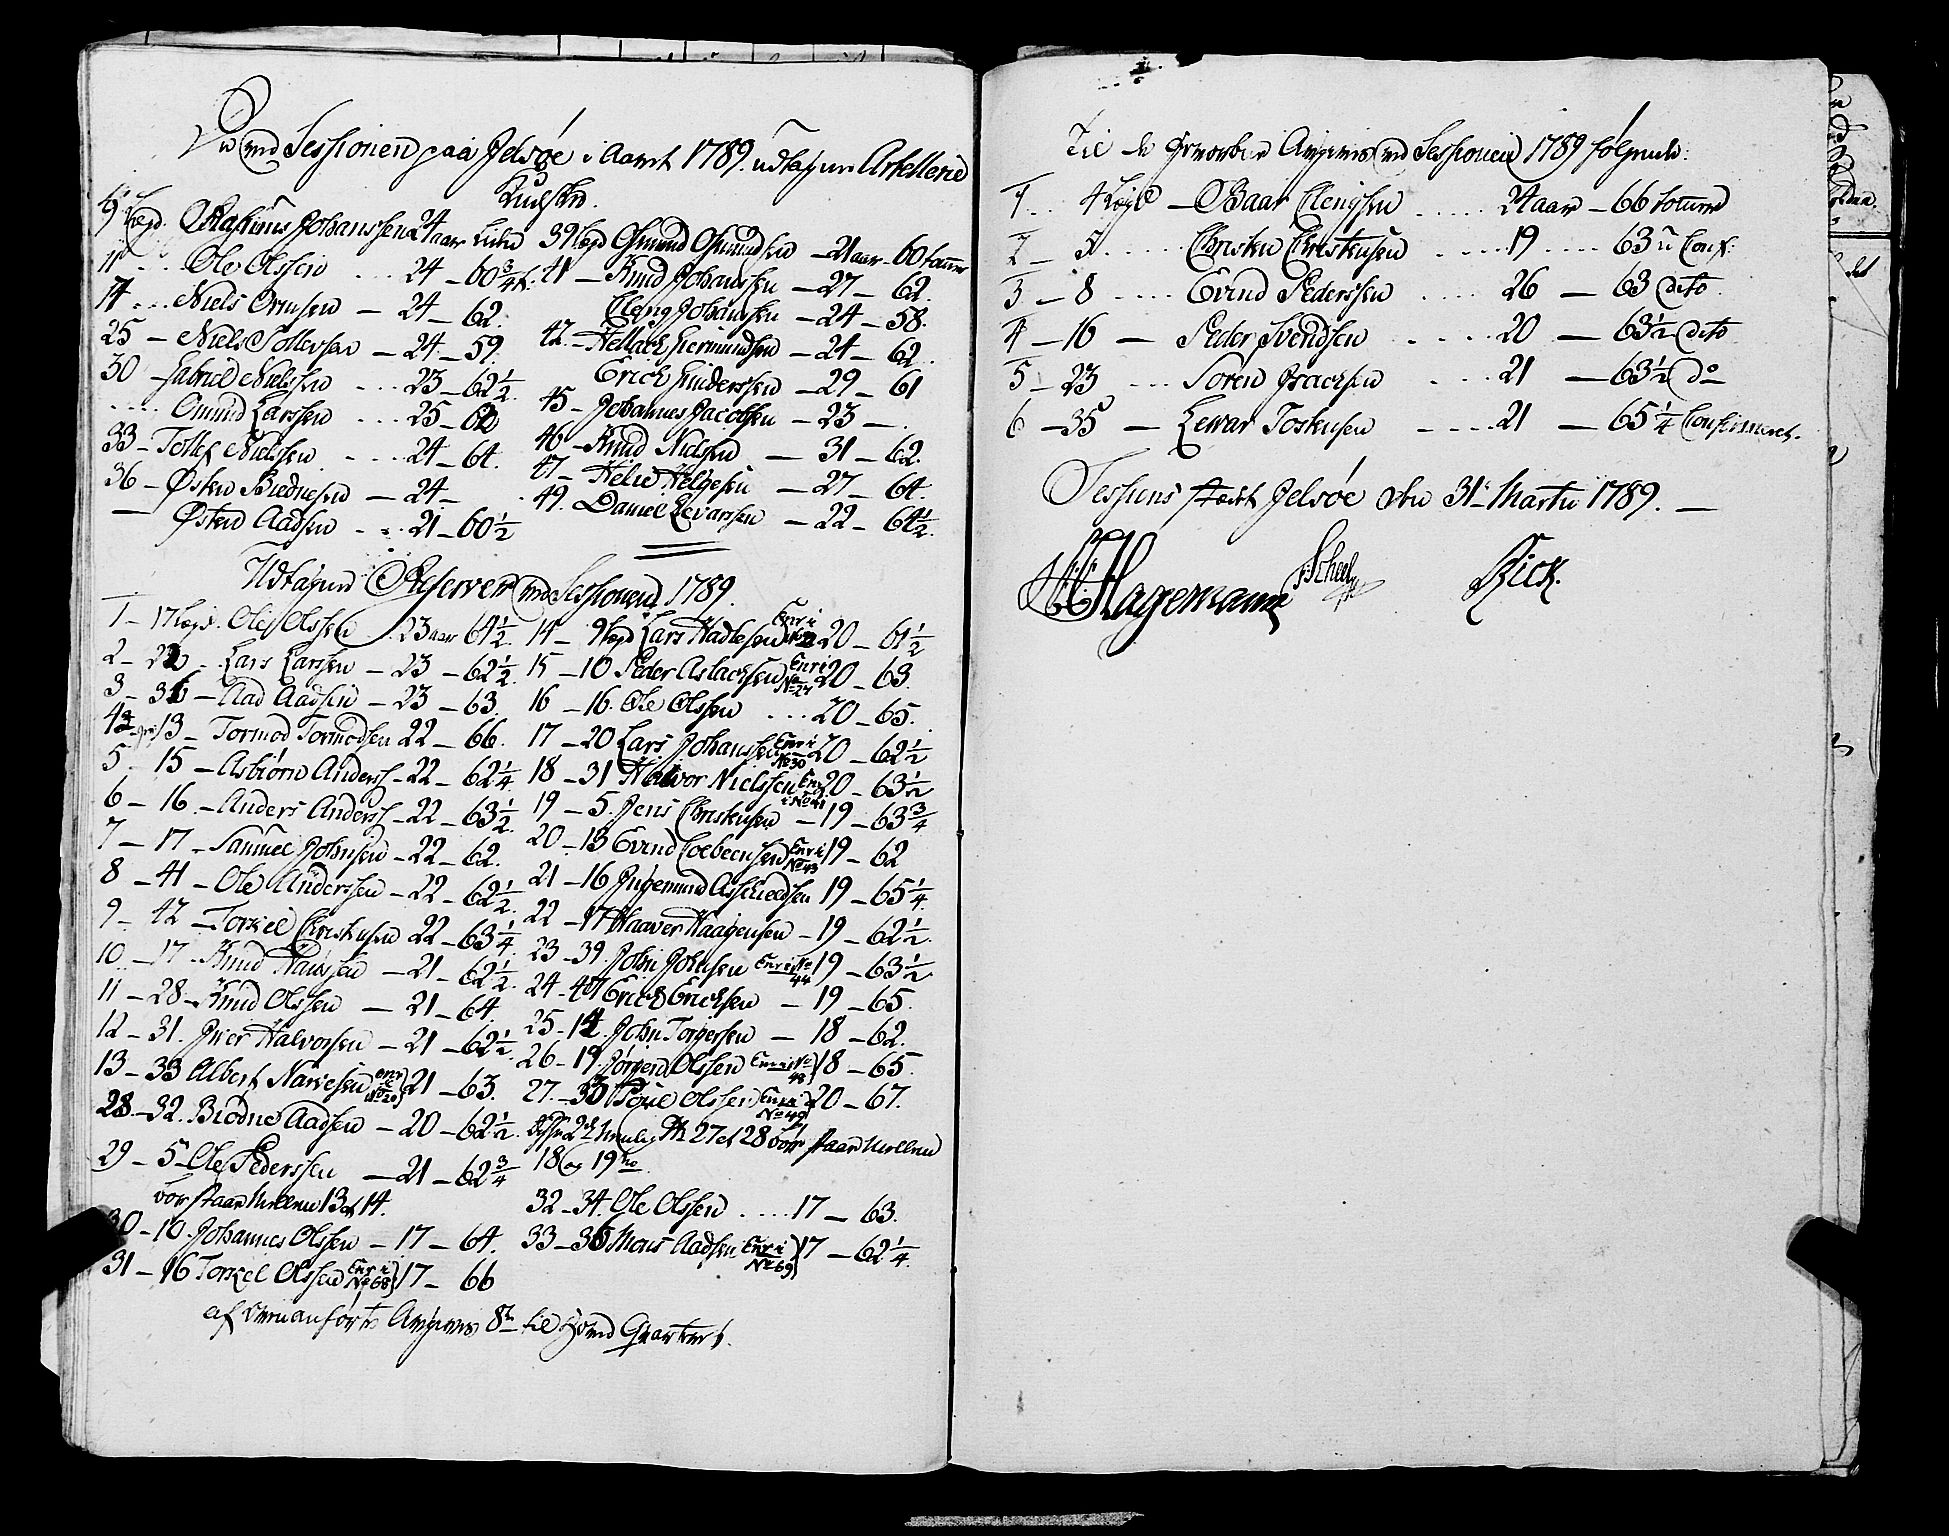 Ved Sessionen paa Jelsöe i Aaret 1789. udtagne Artellerie
Kudske.
9 Lægd. Rasmus Johanssen 24 aar
11 Ole Olssen .... 24 - 60 3/4
14 ... Niels Ormsen - 24 - 62.
25 - Niels Tollevsen - 24 - 59.
30 Gabriel Nielssen ... 23 - 62 1/2
..... Omund Larssen ... 25 - 62
33 - Tollef Nielssen .... 24 - 64.
36 - Østen Biødnesen - 24 -
— Østen Aadsen ... 21 - 60 1/2
39 Lægd Osmund Osmundsen - 21 aar - 60 tomer
41 - Knud Johanssen - 27 - 62.
Eleng Johanssen - 24 - 58.
42 - Hellach Giermundsen - 24 - 62.
Erich Gunderssen - 29 - 61
45 - Johannes Jacobsen - 23 - .
46 - Knud Nielsen - 31 - 62.
47 - Helie Helgesen - 27 - 64.
49. Daniel Levarssen - 22 - 64 1/2.
Udtagne Reserver ved Sessionen 1789.
1 - 17 Lægd. Ole Olssen . 23 aar 64 1/2
2 - 22 - Lars Larssen - 23 - 62 1/2
3 - 36 - Aad Aadsen - 23 - 63.
4 - 13 - Tormod Tormodsen 22 - 66.
5 - 15 - Asbiørn Anderss - 22 - 62 1/4
6 - 16 - Anders Anderss - 22 - 63 1/2.
7 - 17 - Samuel Johnsen - 22 - 62.
8 - 41 - Ole Anderssen - 22 - 62 1/2.
9 - 42 - Torkel Christensen 22 - 63 1/4
10 - 17 - Knud Hanssen - 21 - 62 1/2.
11 - 28 - Knud Olssen - 21 - 64.
12 - 31. Iver Halvorsen - 21 - 62 1/2.
13 - 33 Albert Narvesen Enr i No 20 21 - 63.
28 - 32. Biødne Aadsen - 20 - 62 1/2.
29 - 5 - Ole Pederssen - 21 - 62 3/4
bør staae mellem 13 et 14.
30 - 10. Johannes Olssen - 17 - 64.
31 - 16 Torkel Olssen Enr i No 68 17 - 66
14 - 9 Lægd Lars Hadlesen Enr i 20 - 61 1/2
15 - 10 Peder Aslachsen Enr i No 27 20 - 63.
16 - 16. Ole Olssen ... 20 - 65.
17 - 20 Lars Johanssen Enr i No 30 20 - 62 1/2
18 - 31 Halvor Nielssen Enr i No 41 20 - 63 1/2
19 - 5. Jens Christensen - 19 - 63 3/4
20 - 13 Evind Colbeensen Enr i No 43 19 - 62
21 - 16 Ingemund 19 - 65 1/4
22 - 17 Haaver Haagensen - 19 - 62 1/2.
23 - 39. John Johnsen Enr i No 44 19 - 63 1/2
24 - 47 Erich Erichsen - 19 - 65.
25 - 14. John Torgersen - 18 - 62.
26 - 19. Jørgen Olssen Enr i No 48 18 - 65.
27 - 30 Olssen Enr i No 49 20 - 67.
Disse 2de nemlig No 27 et 28 bør staae mellem
18 og 19 no
32 - 34. Ole Olssen .... 17 - 63.
33 - 36 Mons Aadsen Enr i No 69 17 - 62 1/4
af ovenanførte Angives 8te til
Til Angives ved Sessionen 1789 følgende:
1 .. 4 Lægd - Baar Elengsen ..... 24 aar - 66 tommer
2 - 5 .... Christen Christensen .... 19 .... 63 u Conf:
3 - 8 .... Evind Pederssen .... 26 — 63 dito.
4 - 16 - Peder Svendsen ..... 20 - 63 1/2 dito
5 - 23 ... Soren Isachsen .... 21 — 63 1/2 do
6 - 35 - Levar Tostensen ..... 21 - 65 1/4 Confirmeret.
Sessions stædet Jelsöe den 31 Martii 1789. —
Hagemann Scheel Rick.